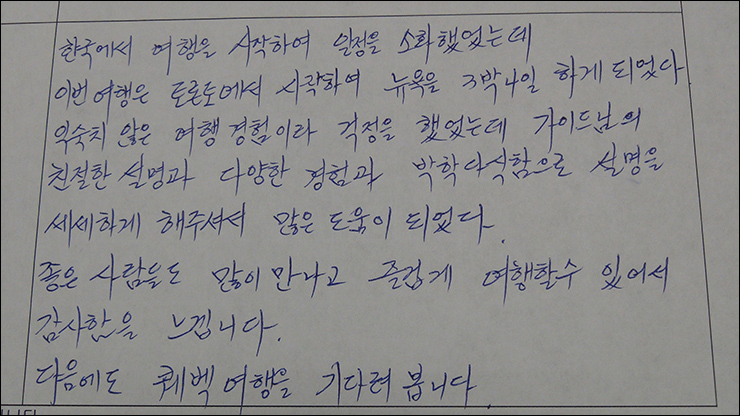 한국에서 여행을 시작하여 일정을 소화했었는데
이번 여행은 토론토에서 시작하여 뉴욕을 3박4일 하게 되었다.
익숙치 않은 여행 경험이라 걱정을 했었는데 가이드님의
친절한 설명과 다양한 경험과 박학다식함으로 설명을
세세하게 해주셔서 많은 도움이 되었다.
좋은 사람들도 많이 만나고 즐겁게 여행할수 있어서
감사함을 느낍니다.
다음에도 퀘벡여행을 기다려 봅니다.